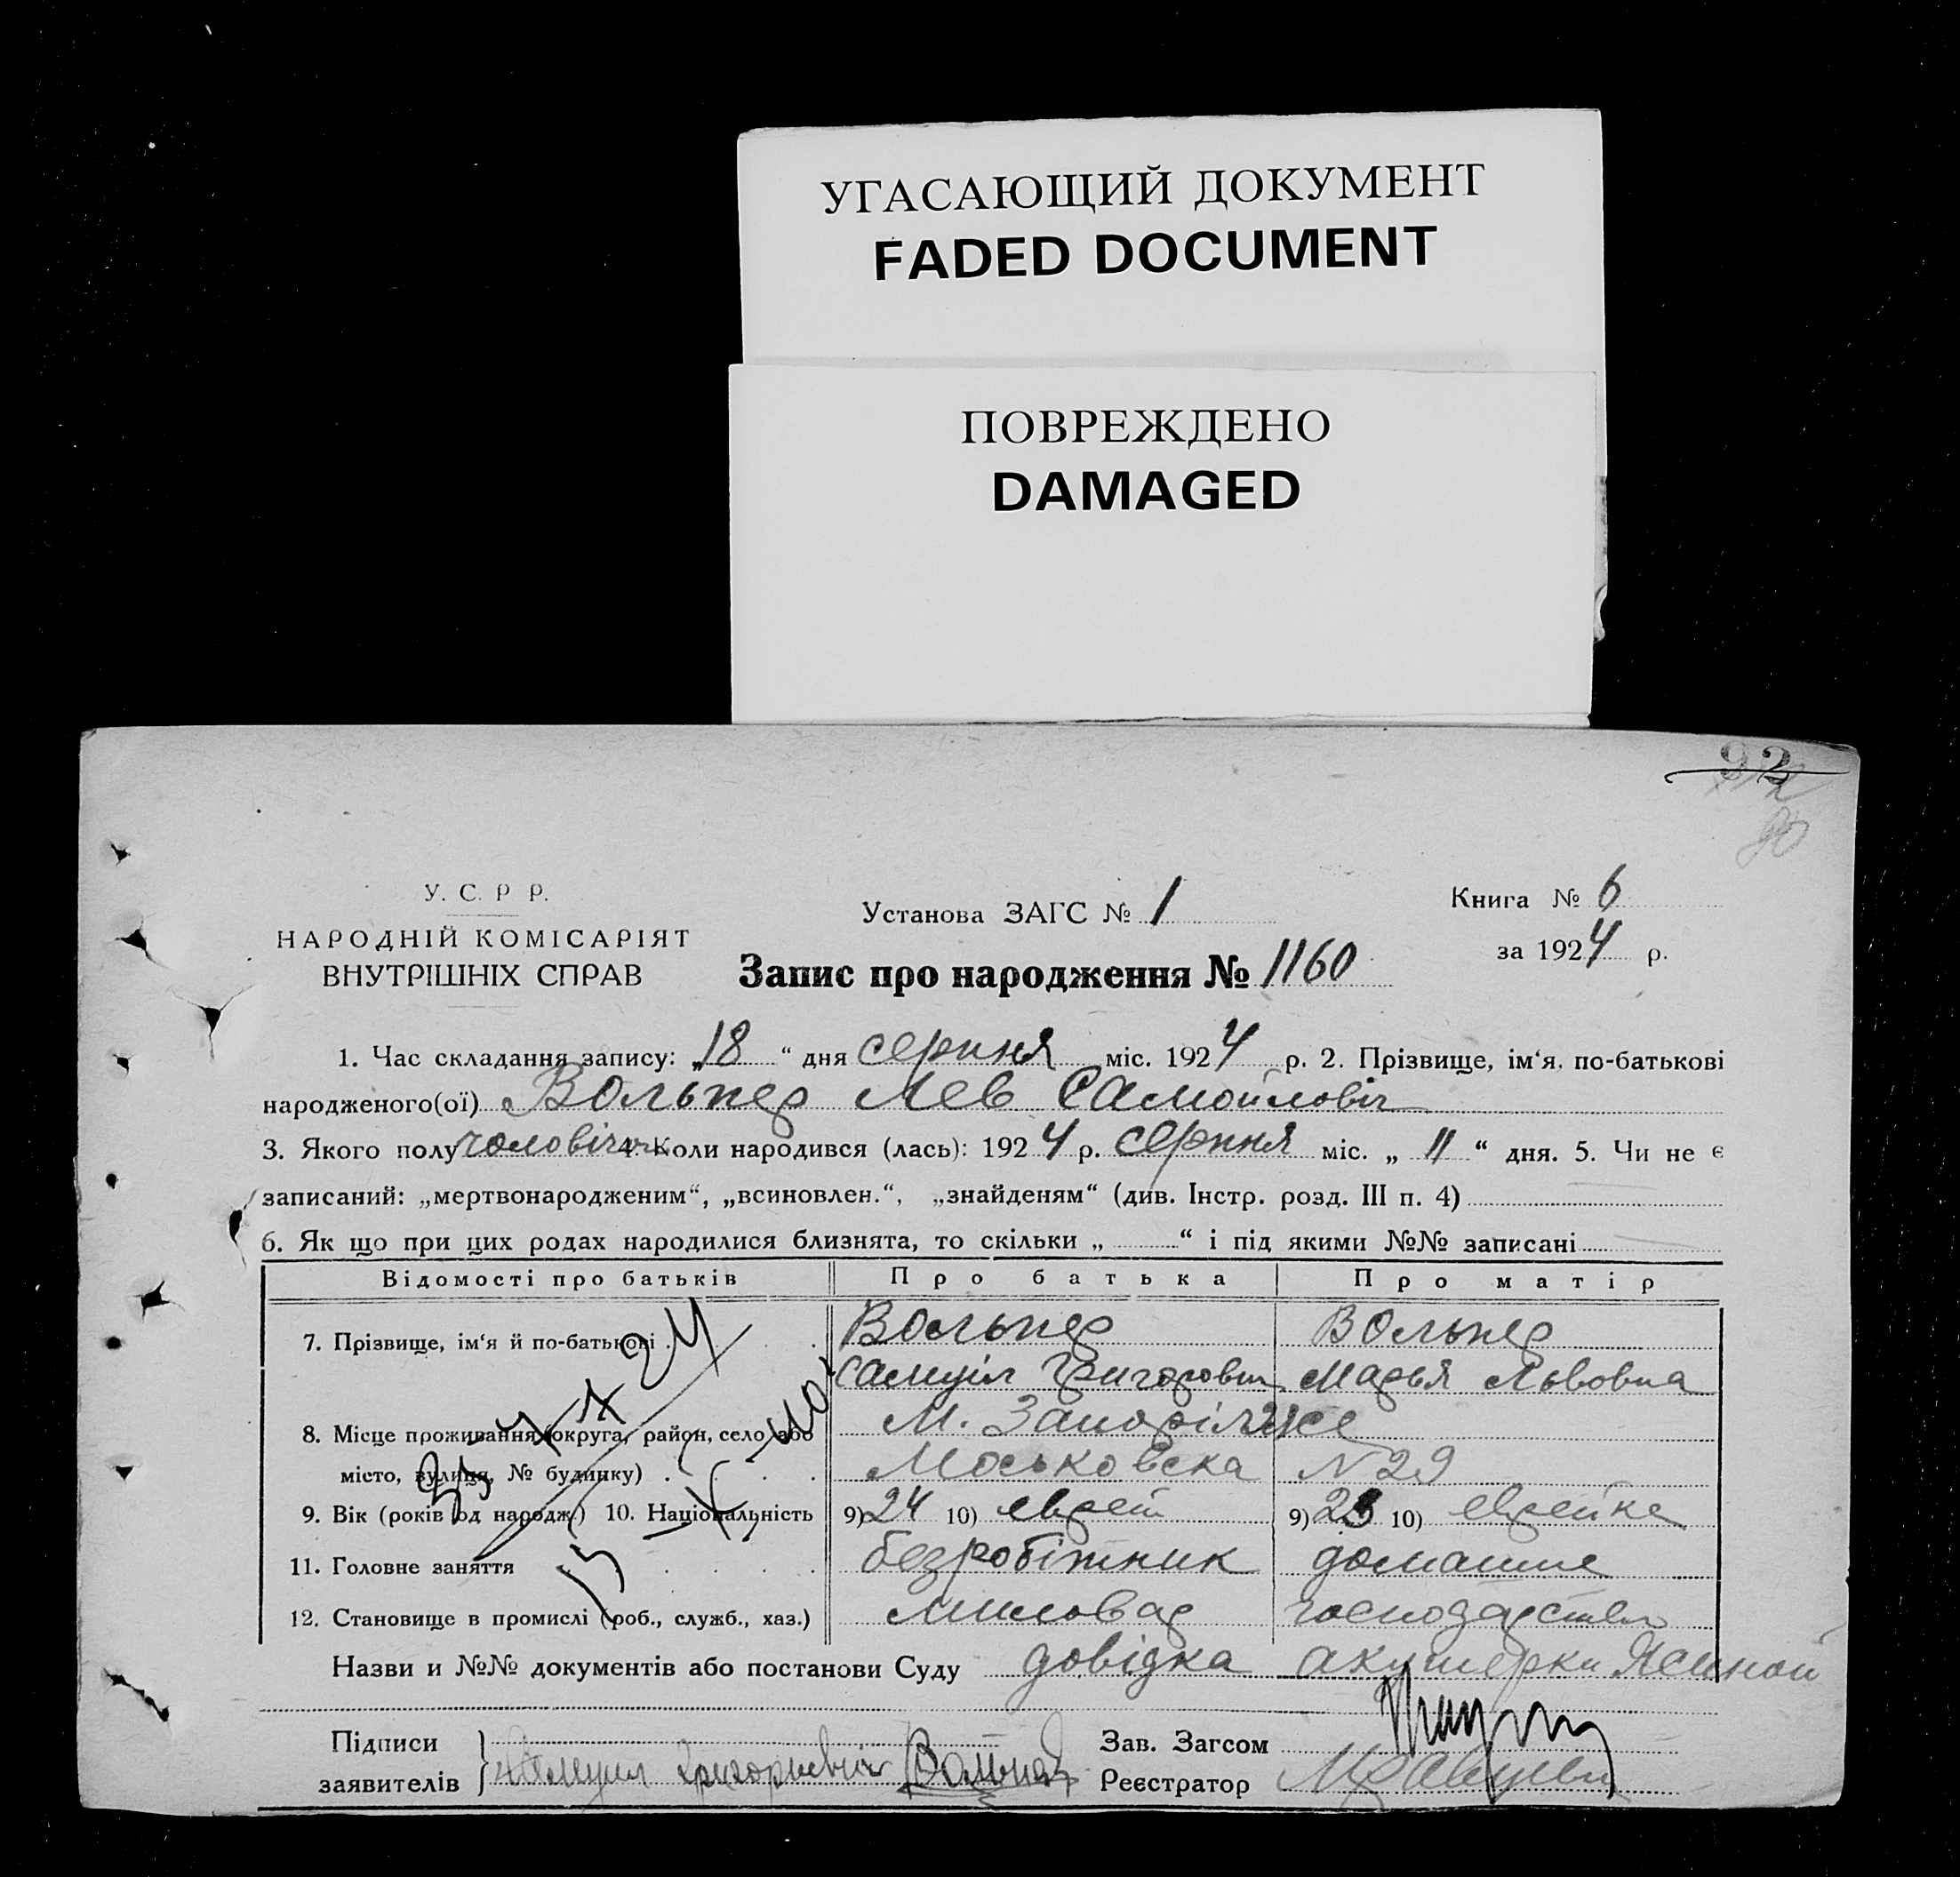 УГАСАЮЩИЙ ДОКУМЕНТ
FADED DOCUMENT
ПОВРЕЖДЕНО
DAMAGED
92
90
У. С. Р Р.
НАРОДНІЙ КОМІСАРІЯТ
ВНУТРІШНІХ СПРАВ
Установа ЗАГС № 1
Книга № 6
за 1924 р.
Запис про народження № 1160
1. Час складання запису: „18“ дня серпня міс. 1924 р. 2. Прізвище, ім‘я, по-батькові
народженого(ої) Вольпер Лев Самойловіч
3. Якого полу чоловіч 4. Коли народився (лась): 1924 р. серпня міс. „11“ дня. 5. Чи не є
записаний: „мертвонародженим“, „всиновлен.“, „знайденям“ (див. Інстр. розд. III п. 4)
6. Як що при цих родах народилися близнята, то скільки „ “ і під якими №№ записані
Відомості про батьків Про батька Про матір
7. Прізвище, ім‘я й по-батькові Вольпер Вольпер
Самуіл Григорович Марья Львовна
8. Місце проживання (округа, район, село або М. Запоріжже
місто, вулиця, № будинку) Московска N 29
9. Вік (років од народж.) 10. Національність 9) 24 10) еврей 9) 23 10) еврейка
11. Головне заняття безробітник домашне
12. Становище в промислі (роб., служб., хаз.) миловар господарство
Назви и №№ документів або постанови Суду довідка акушерки Ясиной
Підписи
заявителів Самуил Григорьевич Вольпер
Зав. Загсом
Реєстратор